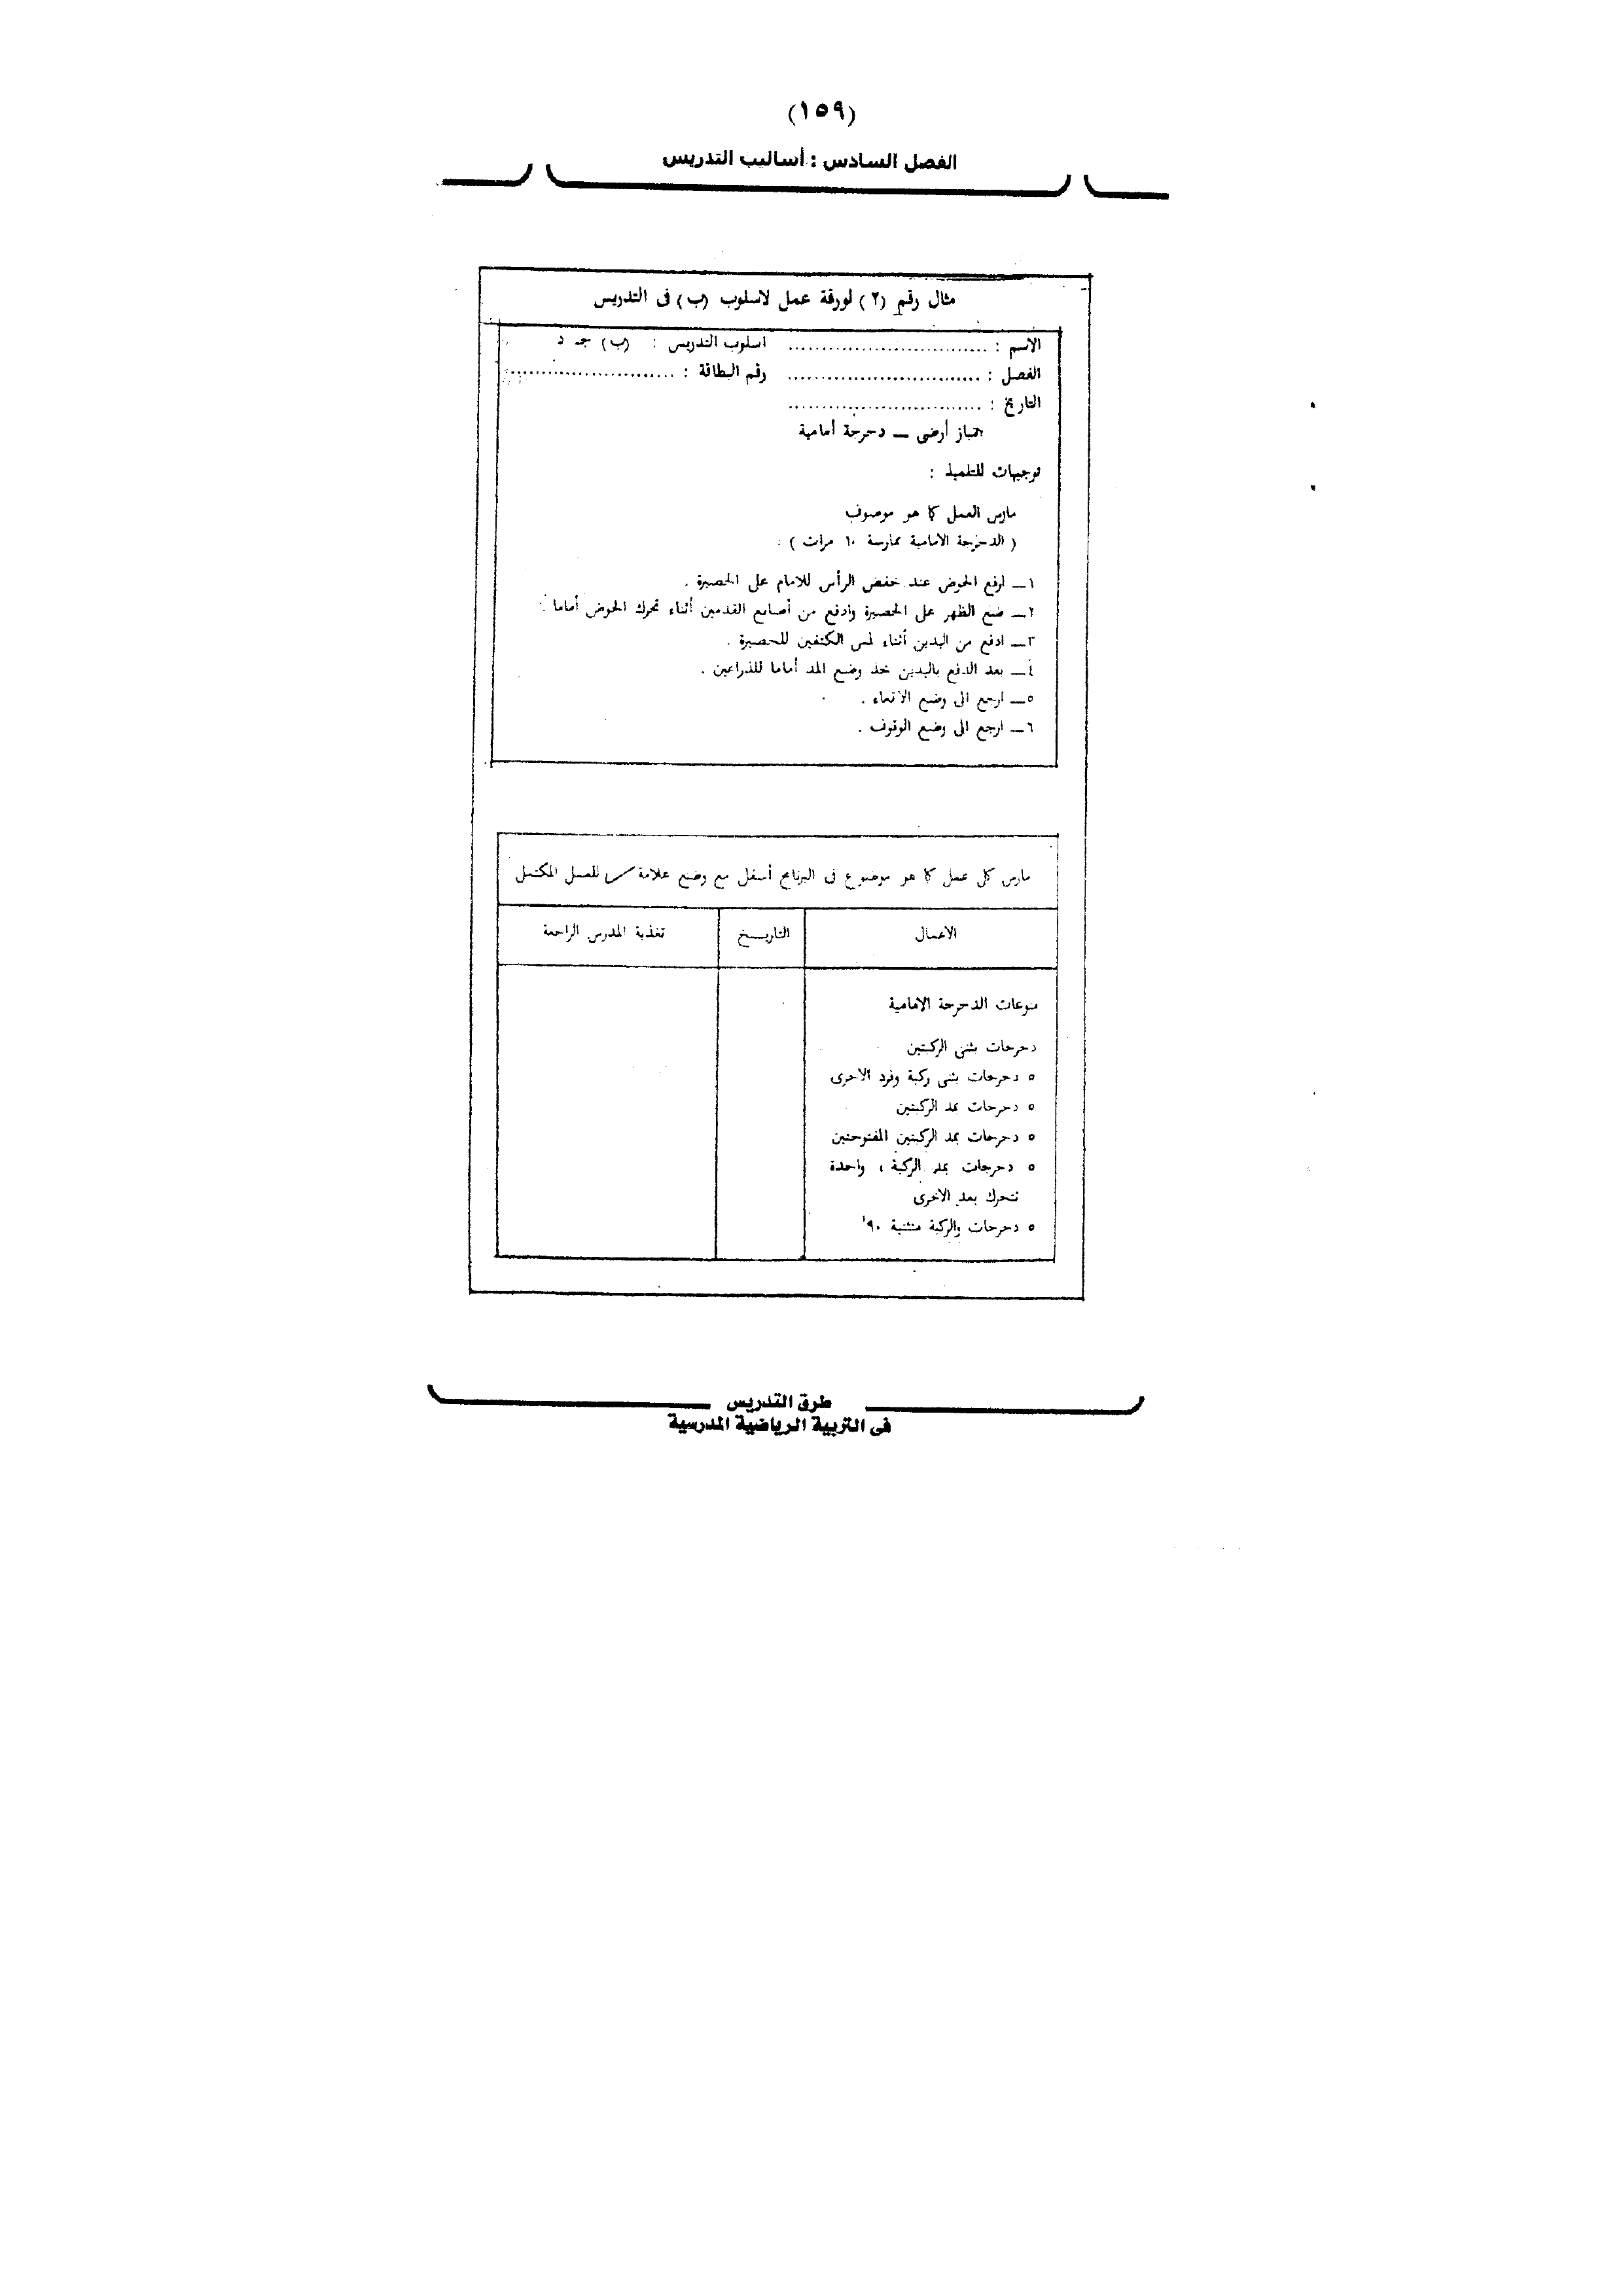 (١٥٩)
الفصل السادس : أساليب التدريس
مثال رقم (٢) لورقة عمل لاسلوب (ب) فى التدريس
الاسم : .............................. اسلوب التدريس : (ب) جـ د
الفصل : ............................. رقم البطاقة : ..........................
التاريخ : .............................
جمباز أرضى ــ دحرجة أمامية
توجيهات للتلميذ :
مارس العمل كما هو موصوف
( الدحرجة الامامية ممارسة ١٠ مرات ) :
١ــ ارفع الحوض عند خفض الرأس للامام على الحصيرة .
٢ــ ضع الظهر على الحصيرة وادفع من أصابع القدمين أثناء تحرك الحوض أماما .
٣ــ ادفع من اليدين أثناء لمس الكتفين للحصيرة .
٤ــ بعد الدفع باليدين خذ وضع المد أماما للذراعين .
٥ــ ارجع الى وضع الاقعاء .
٦ــ ارجع الى وضع الوقوف .
مارس كل عمل كما هو موضوع فى البرنامج أسفل مع وضع علامة ✓ للعمل المكتمل
الاعمال التاريــخ تغذية المدرس الراجعة
منوعات الدحرجة الامامية
دحرجات بثنى الركبتين
٥ دحرجات بثنى ركبة وفرد الاخرى
٥ دحرجات بمد الركبتين
٥ دحرجات بمد الركبتين المفتوحتين
٥ دحرجات بمد الركبة ، واحدة
تتحرك بعد الاخرى
٥ دحرجات والركبة منثنية ٩٠'
طرق التدريس
فى التربية الرياضية المدرسية